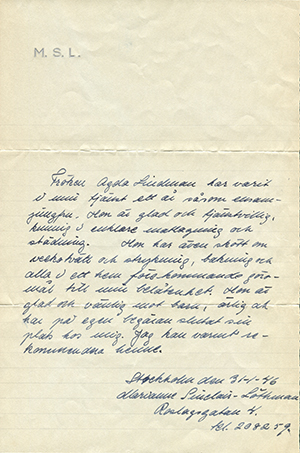 M. S. L.
Fröken Agda Lindman har varit
i min tjänst ett år såsom ensam-
jungfru. Hon är glad och tjänstvillig,
kunnig i enklare matlagning och
städning. Hon har även skött om
veckotvätt och strykning, bakning och
alla i ett hem förekommande göro-
mål till min belåtenhet. Hon är
glad och vänlig mot barn, ärlig och
har på egen begäran slutat sin
plats hos mig. Jag kan varmt re-
kommendera henne.
Stockholm den 31-1-46
Marianne Sinclair-Löthman
Roslagsgatan 4.
tel. 208259.